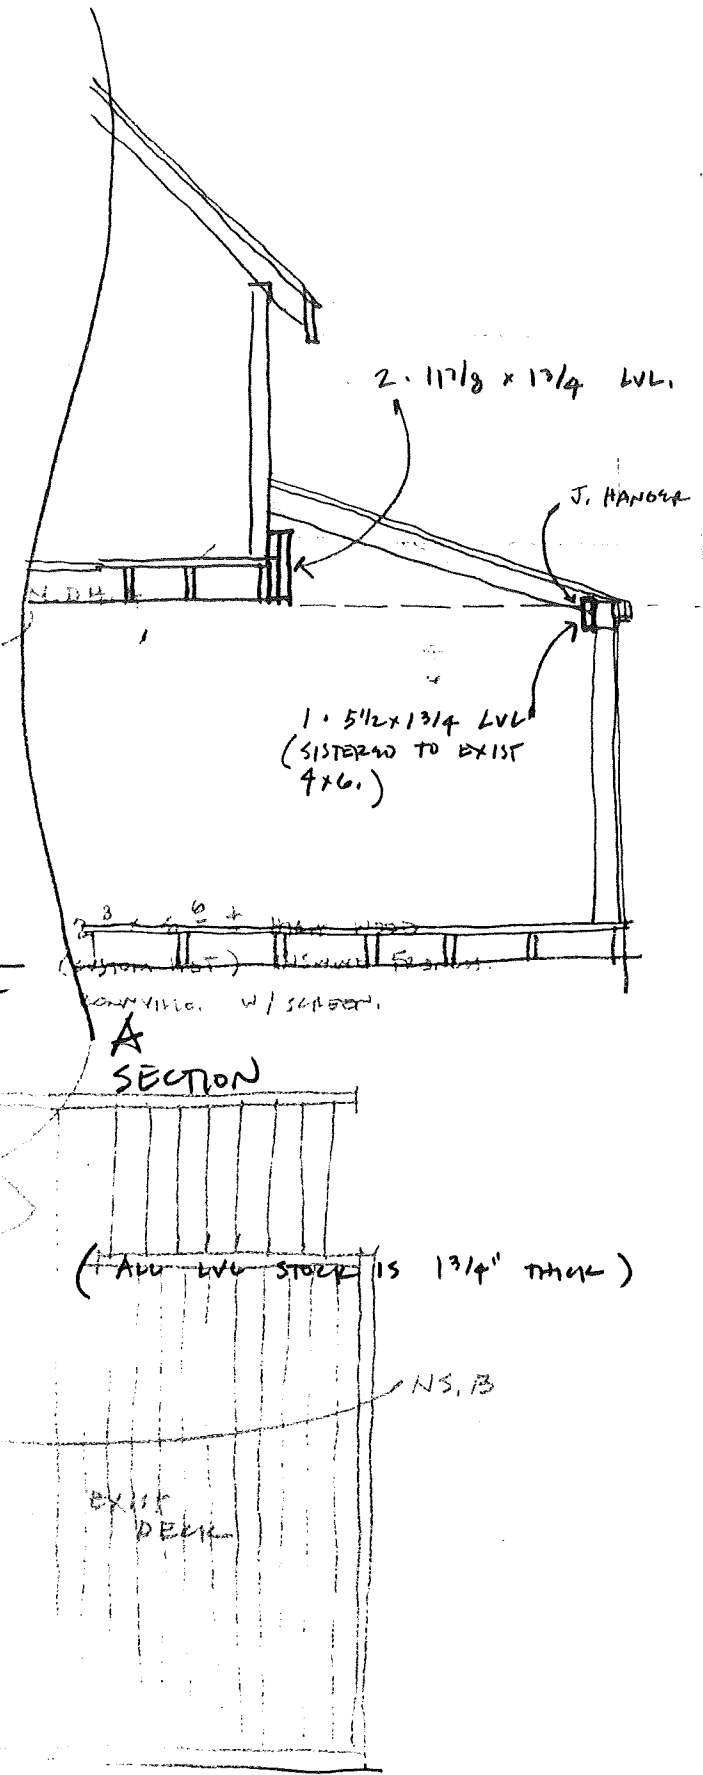 2 · 11 7/8 x 1 3/4 LVL.
J. HANGER
1 · 5 1/2 x 1 3/4 LVL
(SISTERED TO EXIST
4x6.)
W/ SCREEN.
A
SECTION
(ALL LVL STOCK IS 1 3/4" THICK)
NS. B
EXIST
DECK